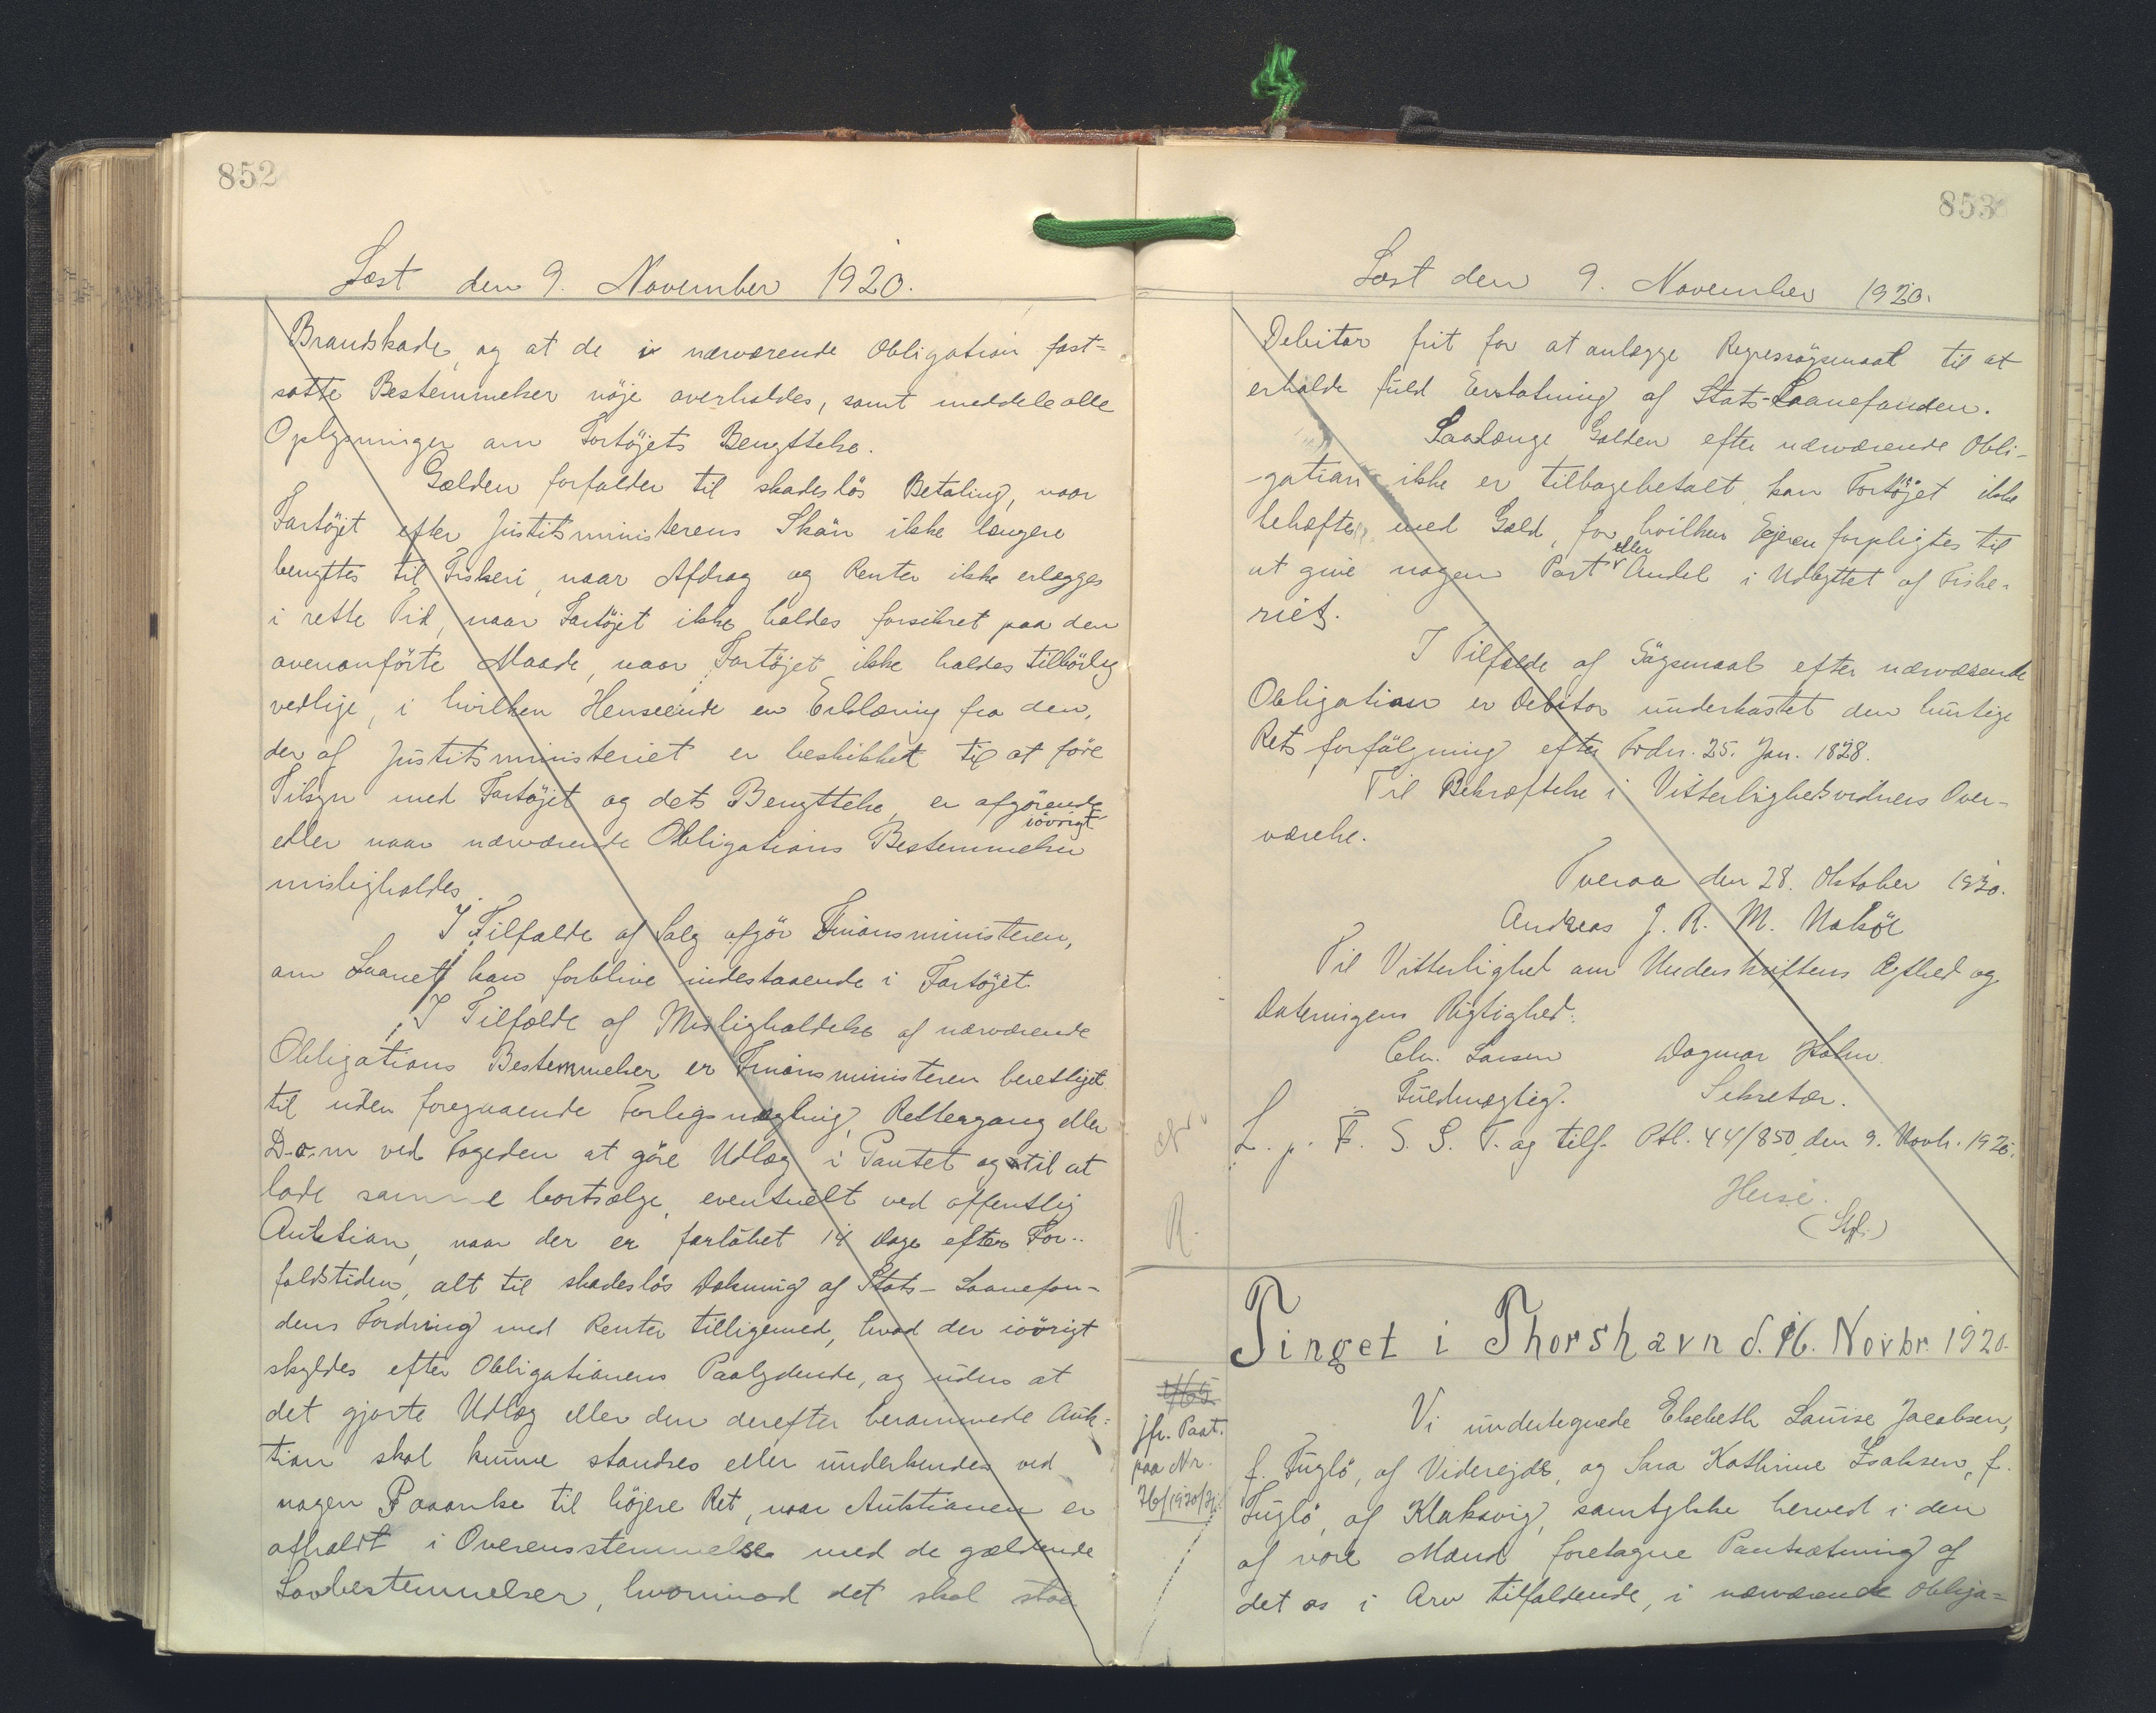 852
Læst den 9. November 1920.
Brandskade, og at de i nærværende Obligation fast=
satte Bestemmelser nöje overholdes, samt meddele alle
Oplysninger om Fartöjets Benyttelse.
Gælden forfalder til skadeslös Betaling, naar
Fartöjet efter Justitsministerens Skön ikke længere
benyttes til Fiskeri, naar Afdrag og Renter ikke erlægges
i rette Tid, naar Fartöjet ikke holdes forsikret paa den
ovenanförte Maade, naar Fartöjet ikke holdes tilbörlig
vedlige, i hvilken Henseende en Erklæring fra den,
der af Justitsministeriet er beskikket til at före
Tilsyn med Fartöjet og dets Benyttelse, er afgörende
eller naar nærværende Obligations Bestemmelser iövrigt
misligholdes.
I Tilfælde af Salg afgör Finansministeren,
om Laanet kan forblive indestaaende i Fartöjet.
I Tilfælde af Misligholdelse af nærværende
Obligations Bestemmelser er Finansministeren berettiget
til uden foregaaende Forligsmægling, Rettergang eller
Dom ved Fogeden at göre Udlæg i Pantet og til at
lade samme bortsælge, eventuelt ved offentlig
Auktion, naar der er forlöbet 14 Dage efter For-
faldstiden, alt til skadeslös Dækning af Stats-Laanefon-
dens Fordring med Renter tilligemed, hvad der iövrigt
skyldes efter Obligationens Paalydende, og uden at
det gjorte Udlæg eller den derefter berammede Auk=
tion skal kunne standses eller underkendes ved
nogen Paaanke til höjere Ret, naar Auktionen er
afholdt i Overensstemmelse med de gældende
Lovbestemmelser, hvorimod det skal staa
853
Læst den 9. November 1920.
Debitor frit for at anlægge Regressögsmaal til at
erholde fuld Erstatning af Stats-Laanefonden.
Saalænge Gælden efter nærværende Obli-
-gation ikke er tilbagebetalt kan Fartöjet ikke
behæftes med Gæld, for hvilken Ejeren forpligtes til
at give nogen Part eller Andel i Udbyttet af Fiske-
riet.
I Tilfælde af Sögsmaal efter nærværende
Obligation er Debitor underkastet den hurtige
Retsforfölgning efter Frdn. 25. Jan. 1828.
Til Bekræftelse i Vitterlighedsvidners Over-
værelse.
Tveraa den 28. Oktober 1920.
Andreas J. R. M. Nolsöe
Til Vitterlighed om Underskriftens Ægthed og
Dateringens Rigtighed:
Chr. Larsen Dagmar Holm.
Fuldmægtig. Sekretær.
L. p. F. S. S. T. og tilf. Ptl. 44/850, den 9. Novb. 1920.
R.
Tinget i Thorshavn d. 16. Novbr. 1920.
465
Jfr. Pant.
paa Nr.
Vi undertegnede Elsebeth Louise Jacobsen,
f. Fuglö, af Viderejde, og Sara Kathrine Isaksen, f.
Fuglö, af Klaksvig, samtykke herved i den
af vore Mænd foretagne Pantsætning af
det os i Arv tilfaldende, i nærværende Obliga=